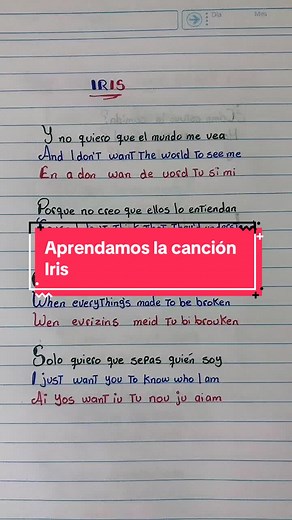 Día
Mes
IRIS
Y no quiero que el mundo me vea
And I don't want the world to see me
En a don wan de uord tu si mi
Porque no creo que ellos lo entiendan
Aprendamos la canción
Iris
When everythings made to be broken
Wen evrizins meid tu bi brouken
Solo quiero que sepas quién soy
I just want you to know who I am
Ai yos want iu tu nou ju aiam